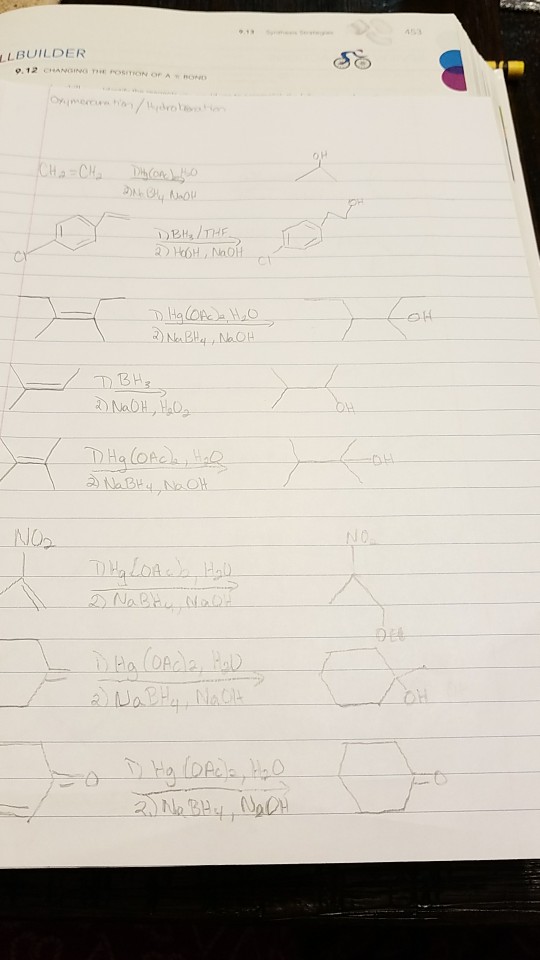 9.13 Synthesis Strategies 453
LLBUILDER
9.12 CHANGING THE POSITION OF A π BOND
Oxymercuration/Hydroboration
OH
CH2=CH2 1)Hg(OAc)2 H2O
2)NaBH4 NaOH
OH
1) BH3/THF
2) HOOH, NaOH
Cl Cl
1) Hg(OAc)2, H2O OH
2) NaBH4, NaOH
1) BH3
2) NaOH, H2O2 OH
1) Hg(OAc)2, H2O OH
2) NaBH4, NaOH
NO2 NO
1) Hg(OAc)2, H2O
2) NaBH4, NaOH
1) Hg(OAc)2, H2O
2) NaBH4, NaOH OH
O 1) Hg(OAc)2, H2O O
2.) NaBH4, NaOH